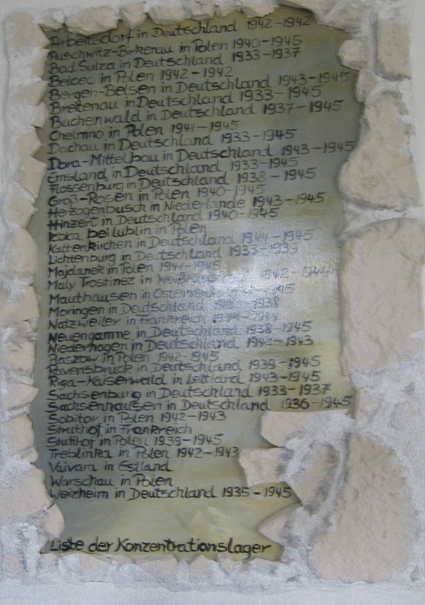 Arbeitsdorf in Deutschland 1942-1942
Auschwitz-Birkenau in Polen 1940-1945
Bad Sulza in Deutschland 1933-1937
Belcec in Polen 1942-1942
Bergen-Belsen in Deutschland 1943-1945
Breitenau in Deutschland 1933-1945
Buchenwald in Deutschland 1937-1945
Chelmno in Polen 1941-1945
Dachau in Deutschland 1933-1945
Dora-Mittelbau in Deutschland 1943-1945
Emsland in Deutschland 1933-1945
Flossenburg in Deutschland 1938-1945
Groß-Rosen in Polen 1940-1945
Herzogenbusch in Niederlande 1943-1945
Hinzert in Deutschland 1940-1945
Izbica bei Lublin in Polen
Kaltenkirchen in Deutschland 1944-1945
Lichtenburg in Deutschland 1933-1939
Majdanek in Polen
Maly Trostinez in 1942-1944
Mauthausen in Österreich
Moringen in Deutschland 1938
Natzweiler in Frankreich
Neuengamme in Deutschland 1938-1945
Niederhagen in Deutschland 1941-1943
Plaszow in Polen 1942-1945
Ravensbruck in Deutschland 1939-1945
Riga-Kaiserwald in Lettland 1943-1945
Sachsenburg in Deutschland 1933-1937
Sachsenhausen in Deutschland 1936-1945
Sobibor in Polen 1942-1943
Struthof in Frankreich
Stutthof in Polen 1939-1945
Treblinka in Polen 1942-1943
Vaivara in Estland
Warschau in Polen
Welzheim in Deutschland 1935-1945
Liste der Konzentrationslager